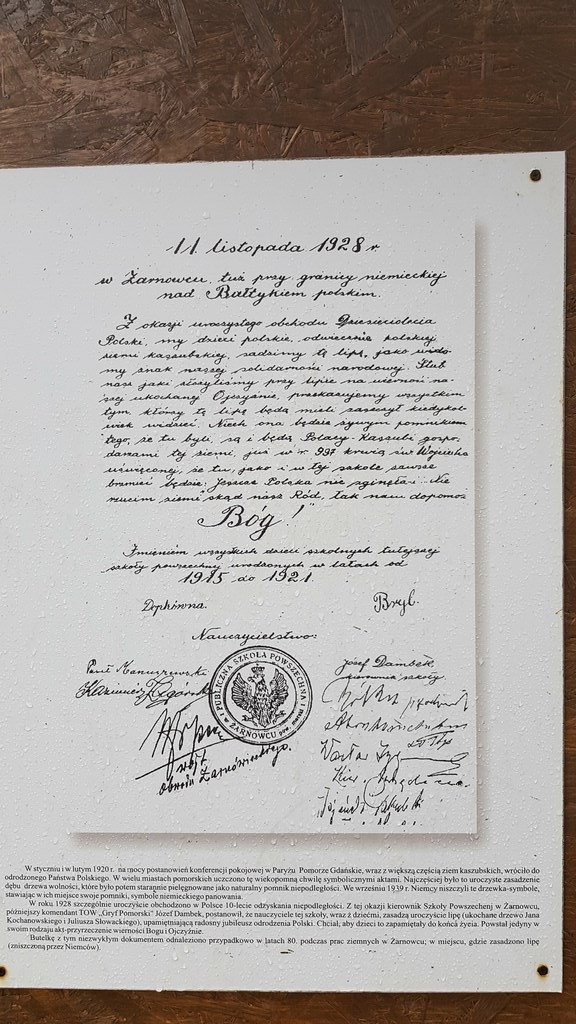 11 listopada 1928 r
w Żarnowcu, tuż przy granicy niemieckiej
nad Bałtykiem polskim.
Z okazji uroczystego obchodu Dziesięciolecia
Polski, my dzieci polskie, odwiecznie polskiej
ziemi kaszubskiej, sadzimy tę lipę, jako wido-
my znak naszej solidarności narodowej. Ślub
nasz jaki złożyliśmy przy lipie na wierność na-
szej ukochanej Ojczyźnie, przekazujemy wszystkim
tym, którzy tę lipę będą mieli zaszczyt kiedykol-
wiek widzieć. Niech ona będzie żywym pomnikiem
tego, że tu byli, są i będą Polacy-Kaszubi gospo-
darzami tej ziemi, już w r. 997 krwią św Wojciecha
uświęconej, że tu, jako i w tej szkole zawsze
brzmieć będzie: Jeszcze Polska nie zginęła i: Nie
rzucim ziemi skąd nasz Ród, tak nam dopomóż
Bóg!
Imieniem wszystkich dzieci szkolnych tutejszej
szkoły powszechnej urodzonych w latach od
1915 do 1921
Depkówna.
Bryl.
Nauczycielstwo:
Józef Dambek
kierownik szkoły
PUBLICZNA SZKOŁA POWSZECHNA
w ŻARNOWCU pow. morski
wójt
obwodu Żarnowieckiego.
W styczniu i w lutym 1920 r. na mocy postanowień konferencji pokojowej w Paryżu Pomorze Gdańskie, wraz z większą częścią ziem kaszubskich, wróciło do
odrodzonego Państwa Polskiego. W wielu miastach pomorskich uczczono tę wiekopomną chwilę symbolicznymi aktami. Najczęściej było to uroczyste zasadzenie
dębu drzewa wolności, które było potem starannie pielęgnowane jako naturalny pomnik niepodległości. We wrześniu 1939 r. Niemcy niszczyli te drzewka-symbole,
stawiając w ich miejsce swoje pomniki, symbole niemieckiego panowania.
W roku 1928 szczególnie uroczyście obchodzono w Polsce 10-lecie odzyskania niepodległości. Z tej okazji kierownik Szkoły Powszechnej w Żarnowcu,
późniejszy komendant TOW „Gryf Pomorski” Józef Dambek, postanowił, że nauczyciele tej szkoły, wraz z dziećmi, zasadzą uroczyście lipę (ukochane drzewo Jana
Kochanowskiego i Juliusza Słowackiego), upamiętniającą radosny jubileusz odrodzenia Polski. Chciał, aby dzieci to zapamiętały do końca życia. Powstał jedyny w
swoim rodzaju akt-przyrzeczenie wierności Bogu i Ojczyźnie.
Butelkę z tym niezwykłym dokumentem odnaleziono przypadkowo w latach 80. podczas prac ziemnych w Żarnowcu; w miejscu, gdzie zasadzono lipę
(zniszczoną przez Niemców).